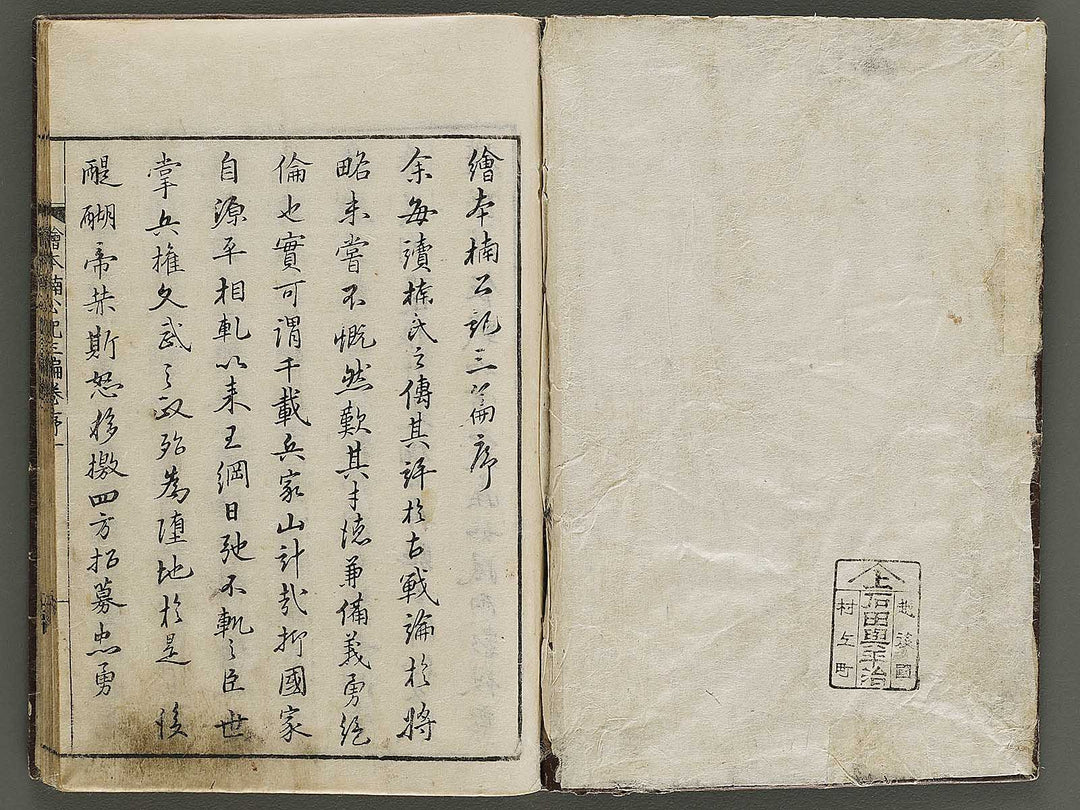 繪本楠公記三篇序
余毎讀楠氏之傳其評於古戰論於將
略未嘗不慨然歎其才徳兼備義勇絕
倫也實可謂千載兵家山計哉抑國家
自源平相軋以来王綱日弛不軌之臣世
掌兵権文武之政殆為墮地於是後
醍醐帝赫斯怒移檄四方招募忠勇
繪本楠公記三編卷序一
越後國
上石田與平治
村上町